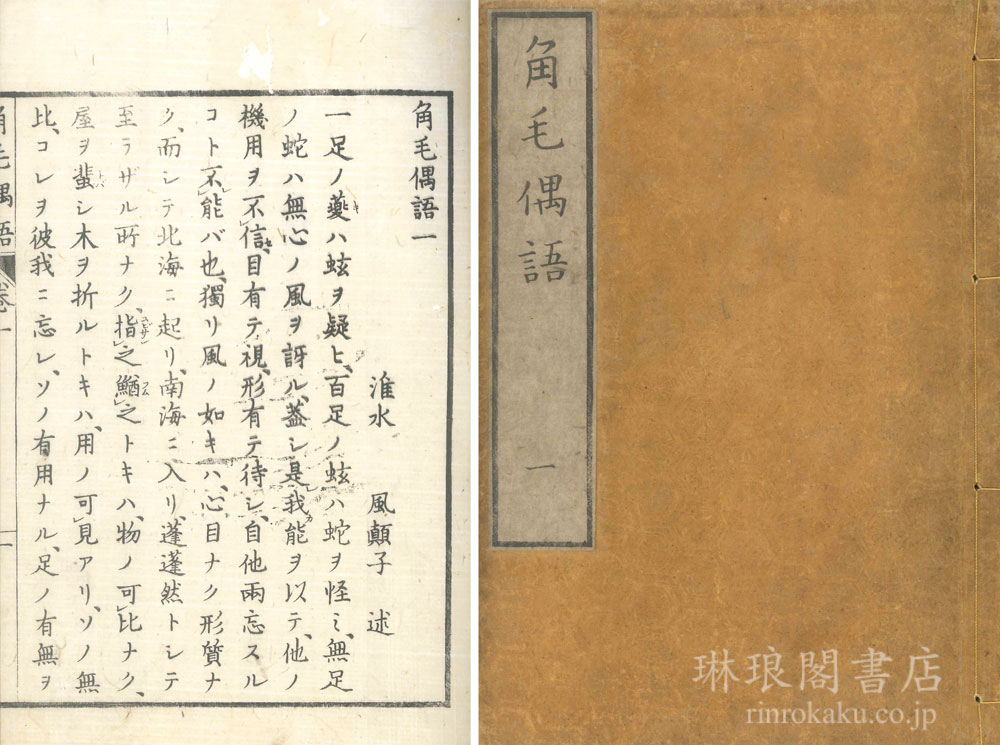 角毛偶語
一
角毛偶語一
淮水 風顛子 述
一足ノ夔ハ蚿ヲ疑ヒ、百足ノ蚿ハ蛇ヲ怪ミ、無足
ノ蛇ハ無心ノ風ヲ訝ル、蓋シ是我能ヲ以テ、他ノ
機用ヲ不信、目有テ視、形有テ待シ、自他兩忘スル
コト不能バ也、獨リ風ノ如キハ、心目ナク形質ナ
ク、而シテ北海ニ起リ、南海ニ入リ、蓬蓬然トシテ
至ラザル所ナク、指之鰌之トキハ、物ノ可比ナク、
屋ヲ蜚シ木ヲ折ルトキハ、用ノ可見アリ、ソノ無
比、コレヲ彼我ニ忘レ、ソノ有用ナル、足ノ有無ヲ
角毛偶語 卷一
一
琳琅閣書店
rinrokaku.co.jp